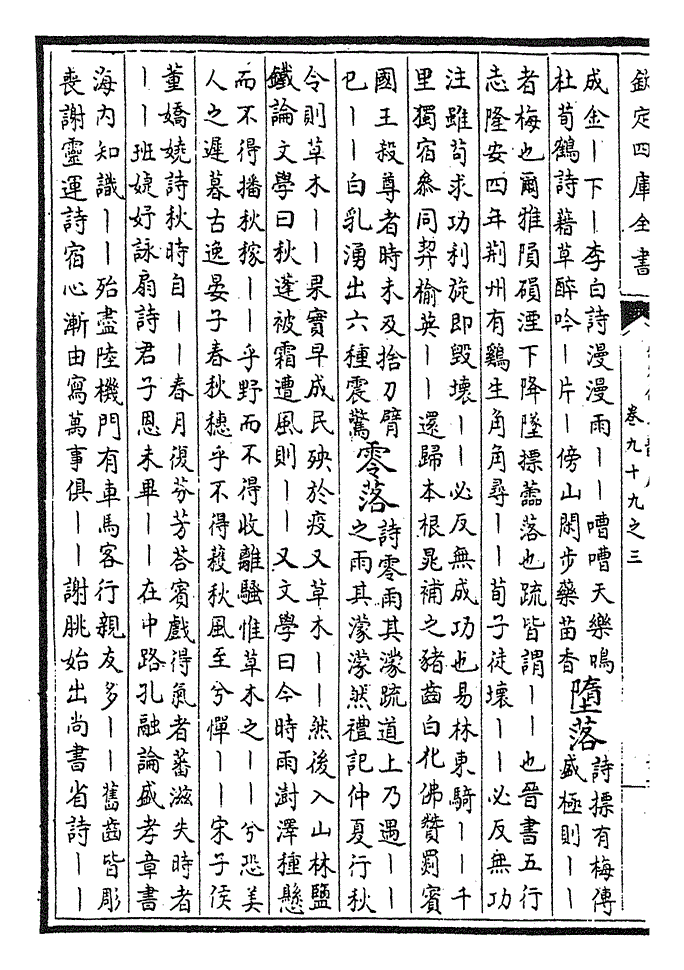 欽定四庫全書
卷九十九之三
成金丨下丨李白詩漫漫雨丨丨嘈嘈天樂鳴
杜荀鶴詩藉草醉吟丨片丨傍山閑步藥苗香
墮落
詩摽有梅傳
盛極則丨丨
者梅也爾雅隕磒湮下降墜摽蘦落也疏皆謂丨丨也晉書五行
志隆安四年荆州有鷄生角角尋丨丨荀子徒壞丨丨必反無功
注雖茍求功利旋即毀壞丨丨必反無成功也易林東騎丨丨千
里獨宿叅同契榆莢丨丨還歸本根晁補之豬齒白化佛贊罽賓
國王殺尊者時未及捨刀臂
已丨丨白乳湧出六種震驚
零落
詩零雨其濛疏道上乃遇丨丨
之雨其濛濛然禮記仲夏行秋
令則草木丨丨果實早成民殃於疫又草木丨丨然後入山林鹽
鐵論文學曰秋蓬被霜遭風則丨丨又文學曰今時雨澍澤種懸
而不得播秋稼丨丨乎野而不得收離騷惟草木之丨丨兮恐美
人之遲暮古逸晏子春秋穗乎不得穫秋風至兮殫丨丨宋子侯
董嬌嬈詩秋時自丨丨春月復芬芳荅賓戲得氣者蕃滋失時者
丨丨班婕妤詠扇詩君子恩未畢丨丨在中路孔融論盛孝章書
海内知識丨丨殆盡陸機門有車馬客行親友多丨丨舊齒皆彫
喪謝靈運詩宿心漸由寫萬事俱丨丨謝朓始出尚書省詩丨丨